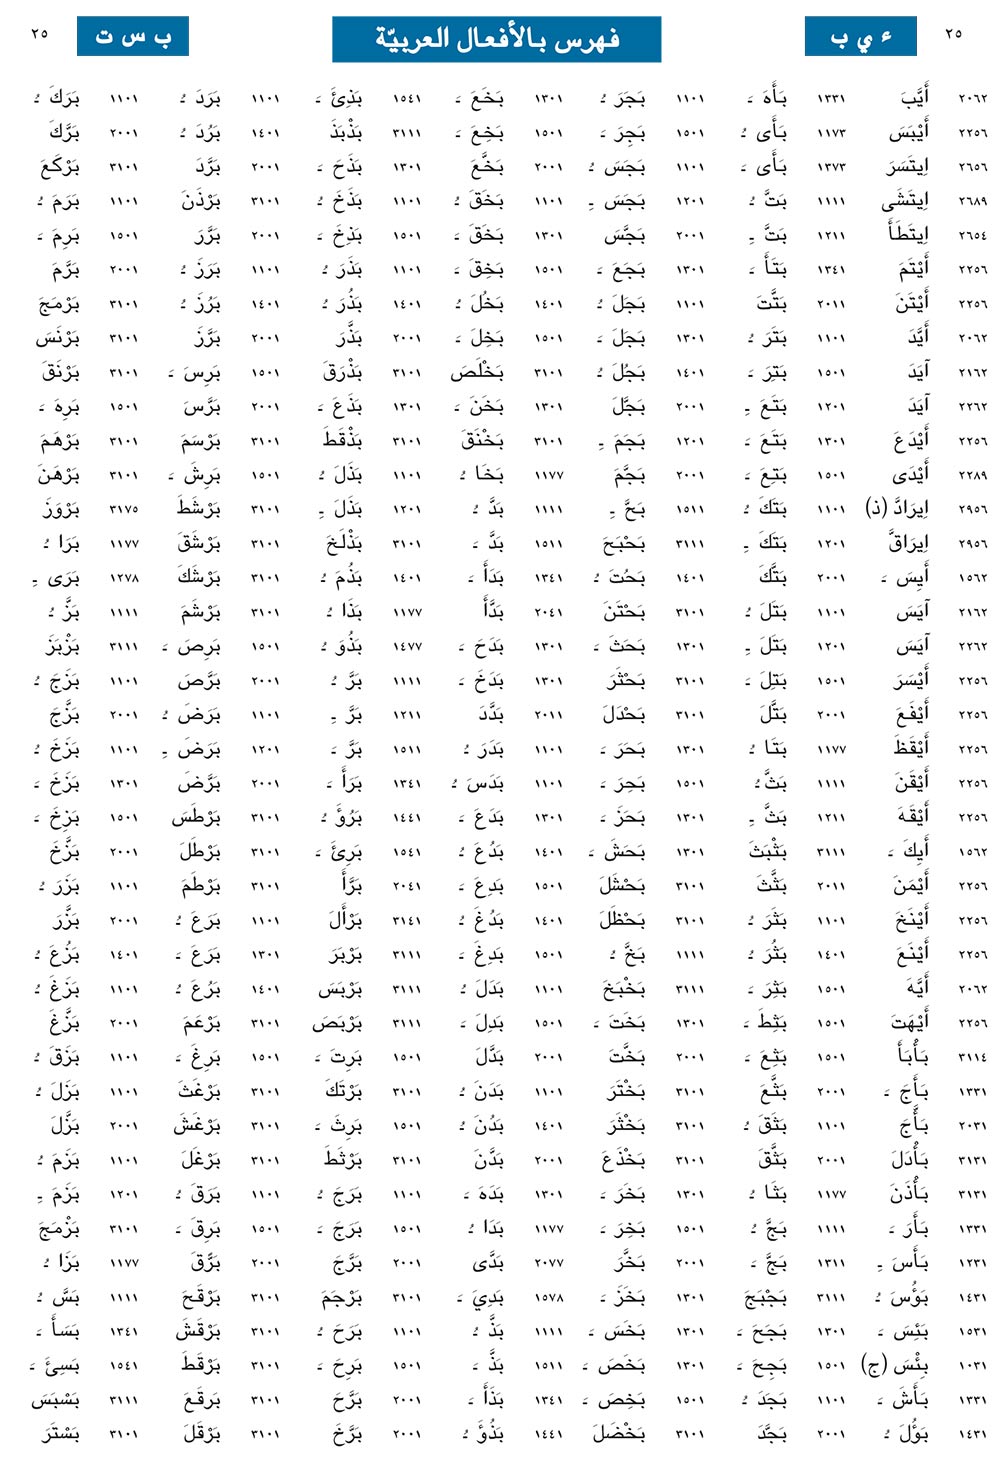 ٢٥ ء ي ب فهرس بالأفعال العربيّة ب س ت ٢٥
٢٠٦٢ أَيَّبَ ١٣٣١ بَأَهَ ـَ ١١٠١ بَجَرَ ـُ ١٣٠١ بَخَعَ ـَ ١٥٤١ بَذِئَ ـَ ١١٠١ بَرَدَ ـُ ١١٠١ بَرَكَ ـُ
٢٢٥٦ أَيْبَسَ ١١٧٣ بَأَى ـُ ١٥٠١ بَجِرَ ـَ ١٥٠١ بَخِعَ ـَ ٣١١١ بَذْبَذَ ١٤٠١ بَرُدَ ـُ ٢٠٠١ بَرَّكَ
٢٦٥٦ اِيتَسَرَ ١٣٧٣ بَأَى ـَ ١١٠١ بَجَسَ ـُ ٢٠٠١ بَخَّعَ ١٣٠١ بَذَحَ ـَ ٢٠٠١ بَرَّدَ ٣١٠١ بَرْكَعَ
٢٦٨٩ اِيتَشَى ١١١١ بَتَّ ـُ ١٢٠١ بَجَسَ ـِ ١١٠١ بَخَقَ ـُ ١١٠١ بَذَخَ ـُ ٣١٠١ بَرْذَنَ ١١٠١ بَرَمَ ـُ
٢٦٥٤ اِيتَطَأَ ١٢١١ بَتَّ ـِ ٢٠٠١ بَجَّسَ ١٣٠١ بَخَقَ ـَ ١٥٠١ بَذِخَ ـَ ٢٠٠١ بَرَّرَ ١٥٠١ بَرِمَ ـَ
٢٢٥٦ أَيْتَمَ ١٣٤١ بَتَأَ ـَ ١٣٠١ بَجَعَ ـَ ١٥٠١ بَخِقَ ـَ ١١٠١ بَذَرَ ـُ ١١٠١ بَرَزَ ـُ ٢٠٠١ بَرَّمَ
٢٢٥٦ أَيْتَنَ ٢٠١١ بَتَّتَ ١١٠١ بَجَلَ ـُ ١٤٠١ بَخُلَ ـُ ١٤٠١ بَذُرَ ـُ ١٤٠١ بَرُزَ ـُ ٣١٠١ بَرْمَجَ
٢٠٦٢ أَيَّدَ ١١٠١ بَتَرَ ـُ ١٣٠١ بَجَلَ ـَ ١٥٠١ بَخِلَ ـَ ٢٠٠١ بَذَّرَ ٢٠٠١ بَرَّزَ ٣١٠١ بَرْنَسَ
٢١٦٢ آيَدَ ١٥٠١ بَتِرَ ـَ ١٤٠١ بَجُلَ ـُ ٣١٠١ بَخْلَصَ ٣١٠١ بَذْرَقَ ١٥٠١ بَرِسَ ـَ ٣١٠١ بَرْنَقَ
٢٢٦٢ آيَدَ ١٢٠١ بَتَعَ ـِ ٢٠٠١ بَجَّلَ ١٣٠١ بَخَنَ ـَ ١٣٠١ بَذَعَ ـَ ٢٠٠١ بَرَّسَ ١٥٠١ بَرِهَ ـَ
٢٢٥٦ أَيْدَعَ ١٣٠١ بَتَعَ ـَ ١٢٠١ بَجَمَ ـِ ٣١٠١ بَخْنَقَ ٣١٠١ بَذْقَطَ ٣١٠١ بَرْسَمَ ٣١٠١ بَرْهَمَ
٢٢٨٩ أَيْدَى ١٥٠١ بَتِعَ ـَ ٢٠٠١ بَجَّمَ ١١٧٧ بَخَا ـُ ١١٠١ بَذَلَ ـُ ١٥٠١ بَرِشَ ـَ ٣١٠١ بَرْهَنَ
٢٩٥٦ اِيرَادَّ (ذ) ١١٠١ بَتَكَ ـُ ١٥١١ بَحَّ ـِ ١١١١ بَدَّ ـُ ١٢٠١ بَذَلَ ـِ ٣١٠١ بَرْشَطَ ٣١٧٥ بَرْوَزَ
٢٩٥٦ اِيرَاقَّ ١٢٠١ بَتَكَ ـِ ٣١١١ بَحْبَحَ ١٥١١ بَدَّ ـَ ٣١٠١ بَذْلَخَ ٣١٠١ بَرْشَقَ ١١٧٧ بَرَا ـُ
١٥٦٢ أَيِسَ ـَ ٢٠٠١ بَتَّكَ ١٤٠١ بَحُتَ ـُ ١٣٤١ بَدَأَ ـَ ١٤٠١ بَذُمَ ـُ ٣١٠١ بَرْشَكَ ١٢٧٨ بَرَى ـِ
٢١٦٢ آيَسَ ١١٠١ بَتَلَ ـُ ٣١٠١ بَحْتَنَ ٢٠٤١ بَدَّأَ ١١٧٧ بَذَا ـُ ٣١٠١ بَرْشَمَ ١١١١ بَزَّ ـُ
٢٢٦٢ آيَسَ ١٢٠١ بَتَلَ ـِ ١٣٠١ بَحَثَ ـَ ١٣٠١ بَدَحَ ـَ ١٤٧٧ بَذُوَ ـُ ١٥٠١ بَرِصَ ـَ ٣١١١ بَزْبَزَ
٢٢٥٦ أَيْسَرَ ١٥٠١ بَتِلَ ـَ ٣١٠١ بَحْثَرَ ١٣٠١ بَدَخَ ـَ ١١١١ بَرَّ ـُ ٢٠٠١ بَرَّصَ ١١٠١ بَزَجَ ـُ
٢٢٥٦ أَيْفَعَ ٢٠٠١ بَتَّلَ ٣١٠١ بَحْدَلَ ٢٠١١ بَدَّدَ ١٢١١ بَرَّ ـِ ١١٠١ بَرَضَ ـُ ٢٠٠١ بَزَّجَ
٢٢٥٦ أَيْقَظَ ١١٧٧ بَتَا ـُ ١٣٠١ بَحَرَ ـَ ١١٠١ بَدَرَ ـُ ١٥١١ بَرَّ ـَ ١٢٠١ بَرَضَ ـِ ١١٠١ بَزَخَ ـُ
٢٢٥٦ أَيْقَنَ ١١١١ بَثَّ ـُ ١٥٠١ بَحِرَ ـَ ١١٠١ بَدَسَ ـُ ١٣٤١ بَرَأَ ـَ ٢٠٠١ بَرَّضَ ١٣٠١ بَزَخَ ـَ
٢٢٥٦ أَيْقَهَ ١٢١١ بَثَّ ـِ ١٣٠١ بَحَزَ ـَ ١٣٠١ بَدَعَ ـَ ١٤٤١ بَرُؤَ ـُ ٣١٠١ بَرْطَسَ ١٥٠١ بَزِخَ ـَ
١٥٦٢ أَيِكَ ـَ ٣١١١ بَثْبَثَ ١٣٠١ بَحَشَ ـَ ١٤٠١ بَدُعَ ـُ ١٥٤١ بَرِئَ ـَ ٣١٠١ بَرْطَلَ ٢٠٠١ بَزَّخَ
٢٢٥٦ أَيْمَنَ ٢٠١١ بَثَّثَ ٣١٠١ بَحْشَلَ ١٥٠١ بَدِعَ ـَ ٢٠٤١ بَرَّأَ ٣١٠١ بَرْطَمَ ١١٠١ بَزَرَ ـُ
٢٢٥٦ أَيْنَخَ ١١٠١ بَثَرَ ـُ ٣١٠١ بَحْظَلَ ١٤٠١ بَدُغَ ـُ ٣١٤١ بَرْأَلَ ١١٠١ بَرَعَ ـُ ٢٠٠١ بَزَّرَ
٢٢٥٦ أَيْنَعَ ١٤٠١ بَثُرَ ـُ ١١١١ بَخَّ ـُ ١٥٠١ بَدِغَ ـَ ٣١١١ بَرْبَرَ ١٣٠١ بَرَعَ ـَ ١٤٠١ بَزُعَ ـُ
٢٠٦٢ أَيَّهَ ١٥٠١ بَثِرَ ـَ ٣١١١ بَخْبَخَ ١١٠١ بَدَلَ ـُ ٣١١١ بَرْبَسَ ١٤٠١ بَرُعَ ـُ ١١٠١ بَزَغَ ـُ
٢٢٥٦ أَيْهَتَ ١٥٠١ بَثِطَ ـَ ١٣٠١ بَخَتَ ـَ ١٥٠١ بَدِلَ ـَ ٣١١١ بَرْبَصَ ٣١٠١ بَرْعَمَ ٢٠٠١ بَزَّغَ
٣١١٤ بَأْبَأَ ١٥٠١ بَثِعَ ـَ ٢٠٠١ بَخَّتَ ٢٠٠١ بَدَّلَ ١٥٠١ بَرِتَ ـَ ١٥٠١ بَرِغَ ـَ ١١٠١ بَزَقَ ـُ
١٣٣١ بَأَجَ ـَ ٢٠٠١ بَثَّعَ ٣١٠١ بَخْتَرَ ١١٠١ بَدَنَ ـُ ٣١٠١ بَرْتَكَ ٣١٠١ بَرْغَثَ ١١٠١ بَزَلَ ـُ
٢٠٣١ بَأَّجَ ١١٠١ بَثَقَ ـُ ٣١٠١ بَخْثَرَ ١٤٠١ بَدُنَ ـُ ١٥٠١ بَرِثَ ـَ ٣١٠١ بَرْغَشَ ٢٠٠١ بَزَّلَ
٣١٣١ بَأْدَلَ ٢٠٠١ بَثَّقَ ٣١٠١ بَخْذَعَ ٢٠٠١ بَدَّنَ ٣١٠١ بَرْثَطَ ٣١٠١ بَرْغَلَ ١١٠١ بَزَمَ ـُ
٣١٣١ بَأْذَنَ ١١٧٧ بَثَا ـُ ١٣٠١ بَخَرَ ـَ ١٣٠١ بَدَهَ ـَ ١١٠١ بَرَجَ ـُ ١١٠١ بَرَقَ ـُ ١٢٠١ بَزَمَ ـِ
١٣٣١ بَأَرَ ـَ ١١١١ بَجَّ ـُ ١٥٠١ بَخِرَ ـَ ١١٧٧ بَدَا ـُ ١٥٠١ بَرَجَ ـَ ١٥٠١ بَرِقَ ـَ ٣١٠١ بَزْمَجَ
١٢٣١ بَأَسَ ـِ ١٣١١ بَجَّ ـَ ٢٠٠١ بَخَّرَ ٢٠٧٧ بَدَّى ٢٠٠١ بَرَّجَ ٢٠٠١ بَرَّقَ ١١٧٧ بَزَا ـُ
١٤٣١ بَؤُسَ ـُ ٣١١١ بَجْبَجَ ١٣٠١ بَخَزَ ـَ ١٥٧٨ بَدِيَ ـَ ٣١٠١ بَرْجَمَ ٣١٠١ بَرْقَحَ ١١١١ بَسَّ ـُ
١٥٣١ بَئِسَ ـَ ١٣٠١ بَجَحَ ـَ ١٣٠١ بَخَسَ ـَ ١١١١ بَذَّ ـُ ١١٠١ بَرَحَ ـُ ٣١٠١ بَرْقَشَ ١٣٤١ بَسَأَ ـَ
١٠٣١ بِئْسَ (ج) ١٥٠١ بَجِحَ ـَ ١٣٠١ بَخَصَ ـَ ١٥١١ بَذَّ ـَ ١٥٠١ بَرِحَ ـَ ٣١٠١ بَرْقَطَ ١٥٤١ بَسِئَ ـَ
١٣٣١ بَأَشَ ـَ ١١٠١ بَجَدَ ـُ ١٥٠١ بَخِصَ ـَ ١٣٤١ بَذَأَ ـَ ٢٠٠١ بَرَّحَ ٣١٠١ بَرقَعَ ٣١١١ بَسْبَسَ
١٤٣١ بَؤُلَ ـُ ٢٠٠١ بَجَّدَ ٣١٠١ بَخْضَلَ ١٤٤١ بَذُؤَ ـُ ٢٠٠١ بَرَّخَ ٣١٠١ بَرْقَلَ ٣١٠١ بَسْتَرَ